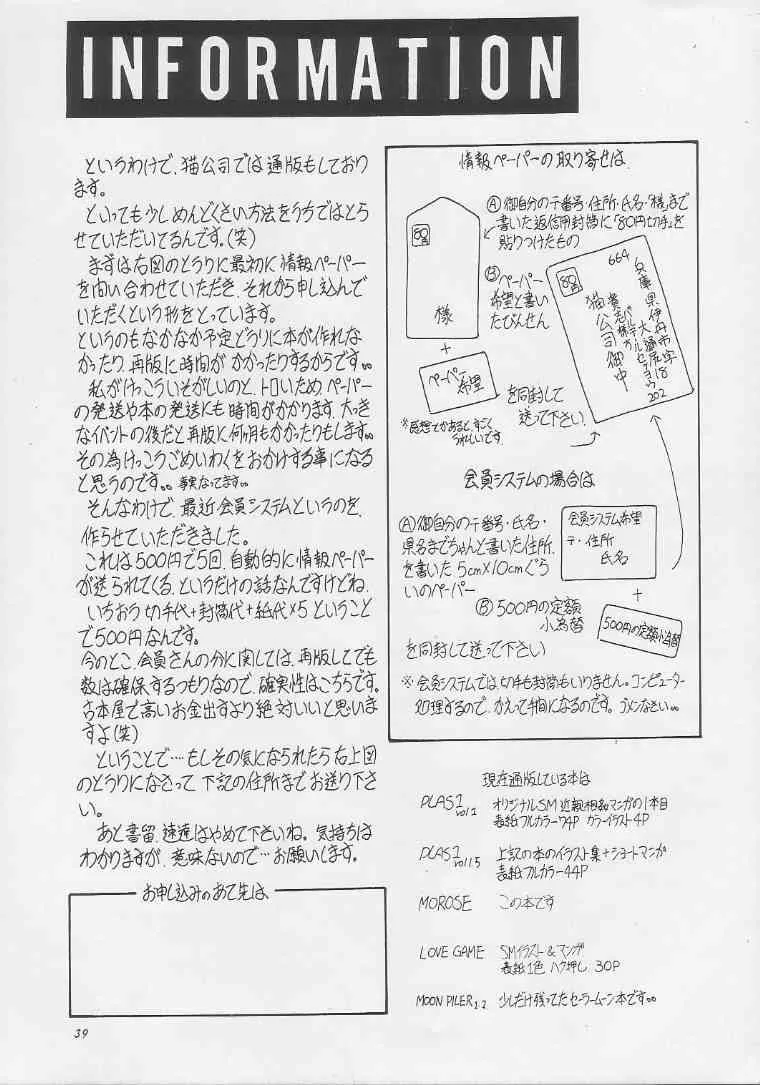 INFORMATION
というわけで、猫公司では通版もしており
ます。
といっても少しめんどくさい方法をうちではとら
せていただいてるんです。(笑)
まずは右図のとうりに最初に情報ペーパー
を問い合わせていただき、それから申し込んで
いただくという形をとっています。
というのもなかなか予定どうりに本が作れな
かったり、再版に時間がかかったりするからです。。
私がけっこういそがしいのと、トロいため、ペーパー
の発送や本の発送にも時間がかかります。大っき
なイベントの後だと再版に何ヶ月もかかったりもします。。
その為けっこうごめいわくをおかけする事になる
と思うのです。。事実なってます。。
そんなわけで、最近会員システムというのを、
作らせていただきました。
これは500円で5回、自動的に情報ペーパー
が送られてくる、というだけの話なんですけどね、
いちおう切手代+封筒代+紙代×5ということ
で500円なんです。
今のとこ、会員さんの分に関しては、再版してでも
数は確保するつもりなので、確実性はこちらです。
古本屋で高いお金出すより絶対いいと思いま
すよ(笑)
ということで…もしその気になられたら右上図
のとうりになさって下記の住所までお送り下さ
い。
あと書留、速達はやめて下さいね。気持ちは
わかりますが、意味ないので…お願いします。
お申し込みのあて先は、
39
情報ペーパーの取り寄せは、
Ⓐ御自分の〒番号・住所・氏名・「様」まで
書いた返信用封筒に「80円切手」を
貼りつけたもの
80
様
+
Ⓑペーパー
希望と書い
たびんせん
ペーパー
希望
を同封して
送って下さい。
※感想とかあると、すごく
うれしいです。
80
664
兵庫県伊丹市
大鹿字
18
202
猫公司御中
会員システムの場合は
Ⓐ御自分の〒番号・氏名・
県名までちゃんと書いた住所、
を書いた、5cm×10cmぐら
いのペーパー
会員システム希望
〒・住所
氏名
+
Ⓑ500円の定額
小為替
500円の定額小為替
を同封して送って下さい
※会員システムでは、切手も封筒もいりません。コンピューター
処理するので、かえって手間になるのです。ゴメンなさい。。
現在通版している本は
PLAS1 vol.1 オリジナルSM近親相姦マンガの1本目
表紙フルカラー74P カライラスト4P
PLAS1 vol1.5 上記の本のイラスト集+ショートマンガ
表紙フルカラー44P
MOROSE この本です
LOVE GAME SMイラスト&マンガ
表紙1色 ハク押し 30P
MOON PILER 1.2 少しだけ残ってたセーラームーン本です。。